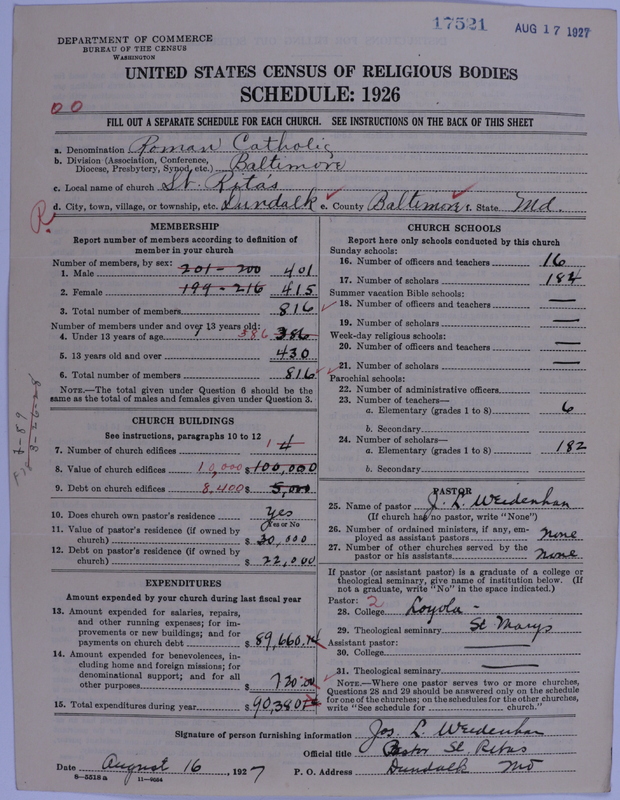 17521 AUG 17 1927
DEPARTMENT OF COMMERCE
BUREAU OF THE CENSUS
WASHINGTON
UNITED STATES CENSUS OF RELIGIOUS BODIES
SCHEDULE: 1926
00
FILL OUT A SEPARATE SCHEDULE FOR EACH CHURCH. SEE INSTRUCTIONS ON THE BACK OF THIS SHEET
a. Denomination Roman Catholic
b. Division (Association, Conference, Diocese, Presbytery, Synod, etc.) Baltimore
c. Local name of church St. Rita's
d. City, town, village, or township, etc. Dundalk e. County Baltimore f. State Md.
R
MEMBERSHIP
Report number of members according to definition of
member in your church
Number of members, by sex:
1. Male 201-200 401
2. Female 199-216 415
3. Total number of members 816
Number of members under and over 13 years old:
4. Under 13 years of age 386 386
5. 13 years old and over 430
6. Total number of members 816
NOTE.—The total given under Question 6 should be the
same as the total of males and females given under Question 3.
CHURCH BUILDINGS
See instructions, paragraphs 10 to 12
7. Number of church edifices 1 4
8. Value of church edifices 10,000 $ 100,000
9. Debt on church edifices 8,400 $ 5,000
10. Does church own pastor's residence yes
Yes or No
11. Value of pastor's residence (if owned by
church) $ 30,000
12. Debt on pastor's residence (if owned by
church) $ 22,000
EXPENDITURES
Amount expended by your church during last fiscal year
13. Amount expended for salaries, repairs,
and other running expenses; for im-
provements or new buildings; and for
payments on church debt $ 89,660.
14. Amount expended for benevolences, in-
cluding home and foreign missions; for
denominational support; and for all
other purposes $ 720.00
15. Total expenditures during year $ 90,380
CHURCH SCHOOLS
Report here only schools conducted by this church
Sunday schools:
16. Number of officers and teachers 16
17. Number of scholars 182
Summer vacation Bible schools:
18. Number of officers and teachers —
19. Number of scholars —
Week-day religious schools:
20. Number of officers and teachers —
21. Number of scholars —
Parochial schools:
22. Number of administrative officers
23. Number of teachers—
a. Elementary (grades 1 to 8) 6
b. Secondary
24. Number of scholars—
a. Elementary (grades 1 to 8) 182
b. Secondary
PASTOR
25. Name of pastor J. L. Weidenhan
(If church has no pastor, write "None")
26. Number of ordained ministers, if any, em-
ployed as assistant pastors none
27. Number of other churches served by the
pastor or his assistants none
If pastor (or assistant pastor) is a graduate of a college or
theological seminary, give name of institution below. (If
not a graduate, write "No" in the space indicated.)
Pastor: 2
28. College Loyola -
29. Theological seminary St Marys
Assistant pastor:
30. College —
31. Theological seminary —
NOTE.—Where one pastor serves two or more churches,
Questions 28 and 29 should be answered only on the schedule
for one of the churches; on the schedules for the other churches,
write "See schedule for church."
Signature of person furnishing information Jos. L. Weidenhan
Official title Pastor St. Ritas
Date August 16, 1927 P. O. Address Dundalk Md
8—5518a 11—9664